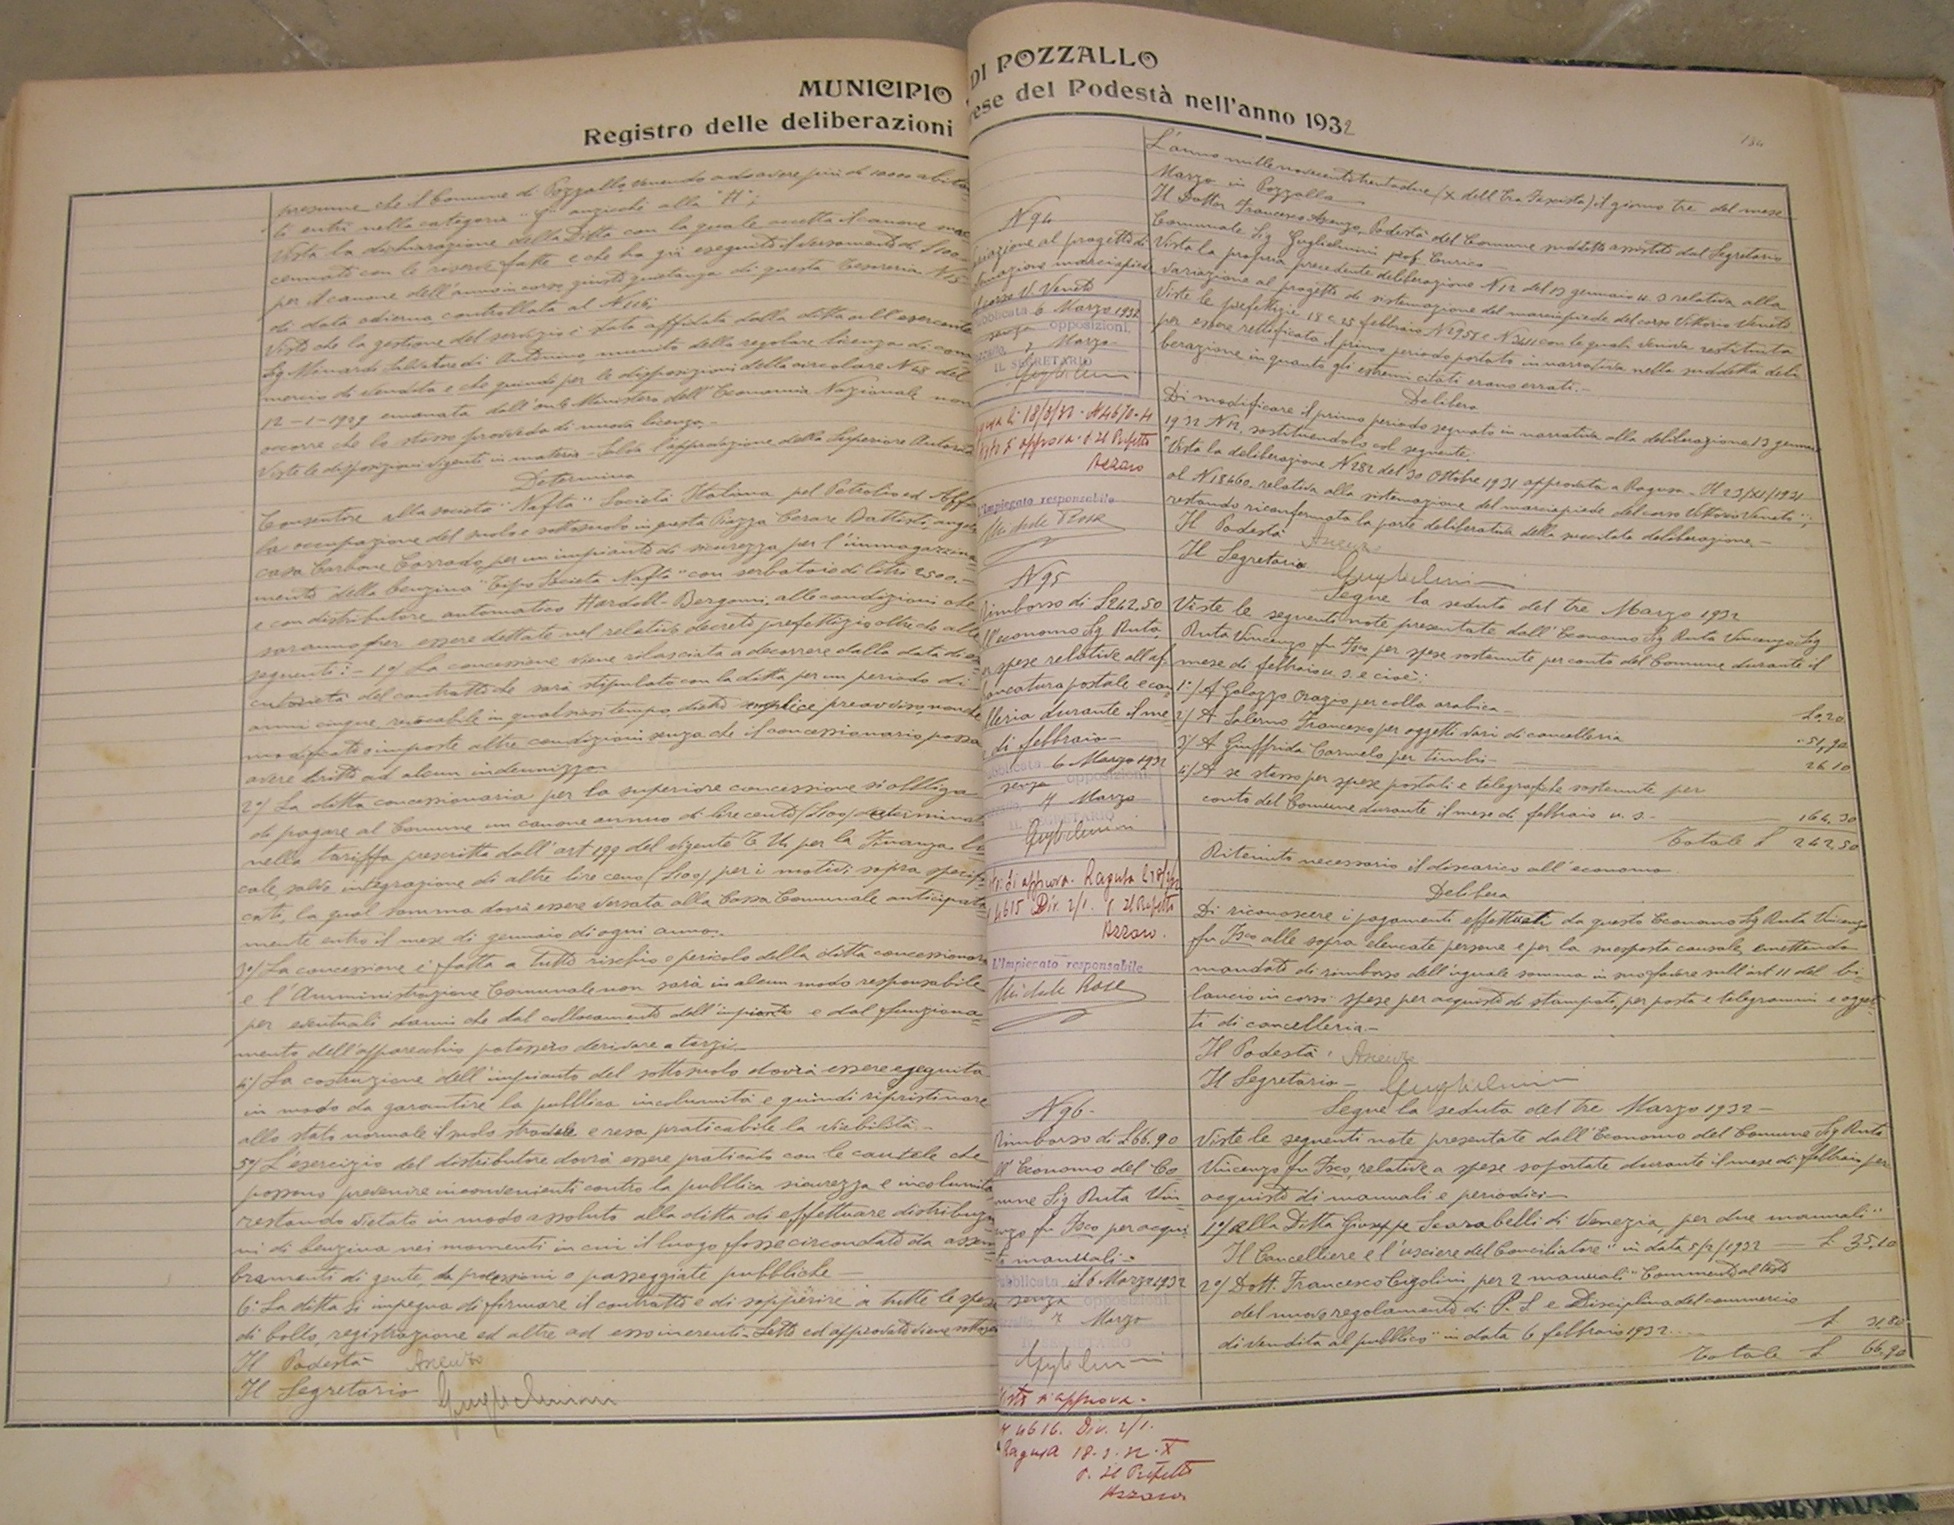 MUNICIPIO DI POZZALLO
Registro delle deliberazioni prese del Podestà nell'anno 1932
presume che il Comune di Pozzallo venendo ad avere più di 10000 abitan
ti entri nella categoria "G" anzichè alla "H";
Vista la dichiarazione della Ditta con la quale accetta il canone mac
cennato con le riserve fatte e che ha già eseguito il versamento di £100
per il canone dell'anno in corso, giusta quietanza di questa Tesoreria N15
di data odierna controllata al N 116;
Visto che la gestione del servizio è stata affidata dalla ditta all'esercente
Sig Monardo Salvatore di Antonino munito della regolare licenza di com
mercio di vendita e che quindi per le disposizioni della circolare N 48 del
12-1-1929 emanata dall'on.le Ministero dell'Economia Nazionale non
occorre che lo stesso provveda di nuova licenza.-
Viste le disposizioni vigenti in materia - Salva l'approvazione della Superiore Autorità
Determina
Consentire alla società "Nafta" Società Italiana pel Petrolio ed Affini
la occupazione del suolo e sottosuolo in questa Piazza Cesare Battisti angolo
casa Carbone Corrado, per un impianto di sicurezza per l'immagazzina
mento della benzina "Tipo Società Nafta" con serbatoio di litri 2500.-
e con distributore automatico Hardoll-Bergomi, alle condizioni che
saranno per essere dettate nel relativo decreto prefettizio oltre che alle
seguenti:- 1°/ La concessione viene rilasciata a decorrere dalla data di es
cutorietà del contratto che sarà stipulato con la ditta per un periodo di
anni cinque, revocabile in qualsiasi tempo, dietro semplice preavviso, nonchè
modificate o imposte altre condizioni senza che il concessionario possa
avere diritto ad alcun indennizzo.
2°/ La ditta concessionaria per la superiore concessione si obbliga
di pagare al Comune un canone annuo di lire cento (£100) determinata
nella tariffa prescritta dall'art 199 del vigente T. U. per la Finanza lo
cale, salvo integrazione di altre lire cento (£100) per i motivi sopra specifi
cati, la qual somma dovrà essere versata alla Cassa Comunale anticipata
mente entro il mese di gennaio di ogni anno.
3°/ La concessione è fatta a tutto rischio e pericolo della ditta concessionaria
e l'Amministrazione Comunale non sarà in alcun modo responsabile
per eventuali danni che dal collocamento dell'impianto e dal funziona
mento dell'apparecchio potessero derivare a terzi.
4°/ La costruzione dell'impianto del sottosuolo dovrà essere eseguita
in modo da garantire la pubblica incolumità e quindi ripristinare
allo stato normale il suolo stradale e resa praticabile la viabilità.-
5°/ L'esercizio del distributore dovrà essere praticato con le cautele che
possono prevenire inconvenienti contro la pubblica sicurezza e incolumità
restando vietato in modo assoluto alla ditta di effettuare distribuzio
ni di benzina nei momenti in cui il luogo fosse circondato da assem
bramenti di gente, da processioni o passeggiate pubbliche
6° La ditta si impegna di firmare il contratto e di sopperire a tutte le spese
di bollo, registrazione ed altre ad esso inerenti. Letto ed approvato viene sottoscr
Il Podestà
Il Segretario Guglielmini
L'anno millenovecentotrentadue (X dell'Era Fascista) il giorno tre del mese
Marzo in Pozzallo
Il Dottor Francesco Podestà del Comune suddetto assistito dal Segretario
Comunale Sig Guglielmini prof. Enrico
N 94
Variazione al progetto di
sistemazione marciapiede
corso V. Veneto
Pubblicata 6 Marzo 1932
senza opposizioni.
7 Marzo
IL SEGRETARIO
Guglielmini
Ragusa li 18/3/32 - N 4670-4
Visto si approva - p. Il Prefetto
Azzaro
L'Impiegato responsabile
Michele Rosa
Vista la propria precedente deliberazione N 12 del 13 gennaio u. s relativa alla
variazione al progetto di sistemazione del marciapiede del corso Vittorio Veneto
Viste le prefettizie 18 e 25 febbraio N 2958 e N 3411 con le quali veniva restituita
per essere rettificato il primo periodo portato in narrativa nella suddetta deli
berazione in quanto gli estremi citati erano errati.-
Delibera
Di modificare il primo periodo segnato in narrativa alla deliberazione 13 gennaio
1932 N 12, sostituendolo col seguente:
"Vista la deliberazione N 282 del 30 Ottobre 1931 approvata a Ragusa - Il 23/XII/1931
al N 18460, relativa alla sistemazione del marciapiede del corso Vittorio Veneto";
restando riconfermata la parte deliberativa della succitata deliberazione.-
Il Podestà
Il Segretario Guglielmini
Segue la seduta del tre Marzo 1932
N 95
Rimborso di £242.50
all'economo Sig Ruta
per spese relative all'af
francatura postale e can
celleria durante il me
se di febbraio-
Pubblicata 6 Marzo 1932
senza opposizioni
7 Marzo
IL SEGRETARIO
Guglielmini
Visto: Si approva. Ragusa li 18/3/32
N 4615 Div. 2/1. p. Il Prefetto
Azzaro.
L'Impiegato responsabile
Michele Rosa
Viste le seguenti note presentate dall'Economo Sig Ruta Vincenzo Sig
Ruta Vincenzo fu Fsco per spese sostenute per conto del Comune durante il
mese di febbraio u. s. e cioè:
1°/ A Galazzo Orazio per colla arabica- £ 0.20
2/ A Salerno Francesco per oggetti vari di cancelleria " 51,90
3/ A Giuffrida Carmelo per timbri- 26.10
4/ A se stesso per spese postali e telegrafiche sostenute per
conto del Comune durante il mese di febbraio u. s. - 164.30
Totale £ 242,50
Ritenuto necessario il discarico all'economo
Delibera
Di riconoscere i pagamenti effettuati da questo Economo Sig Ruta Vincenzo
fu Fsco alle sopra elencate persone e per la suesposta causale, emettendo
mandato di rimborso dell'uguale somma in suo favore sull'art 11 del bi
lancio in corso: spese per acquisto di stampati, per posta e telegrammi e ogget
ti di cancelleria.-
Il Podestà
Il Segretario - Guglielmini
Segue la seduta del tre Marzo 1932 -
N 96-
Rimborso di £66.90
all'Economo del Co
mune Sig Ruta Vin
cenzo fu Fsco per acqui
sto manuali-
Pubblicata il 6 Marzo 1932
senza opposizioni
7 Marzo
Guglielmini
Visto si approva.
N 4616. Div. 2/1.
Ragusa 18.3.32-X
p. Il Prefetto
Azzaro
Viste le seguenti note presentate dall'Economo del Comune Sig Ruta
Vincenzo fu Fsco, relative a spese soportate durante il mese di febbraio per
acquisto di manuali e periodici-
1°/ alla Ditta Giuseppe Scarabelli di Venezia per due manuali "
Il Cancelliere e l'usciere del Conciliatore" in data 5/2/1932 - £ 35,10
2°/ Dott. Francesco Cigolini per 2 manuali "Commento al testo
del nuovo regolamento di P. S. e Disciplina del commercio
di vendita al pubblico" in data 6 febbraio 1932.... £ 31,80
Totale £ 66,90